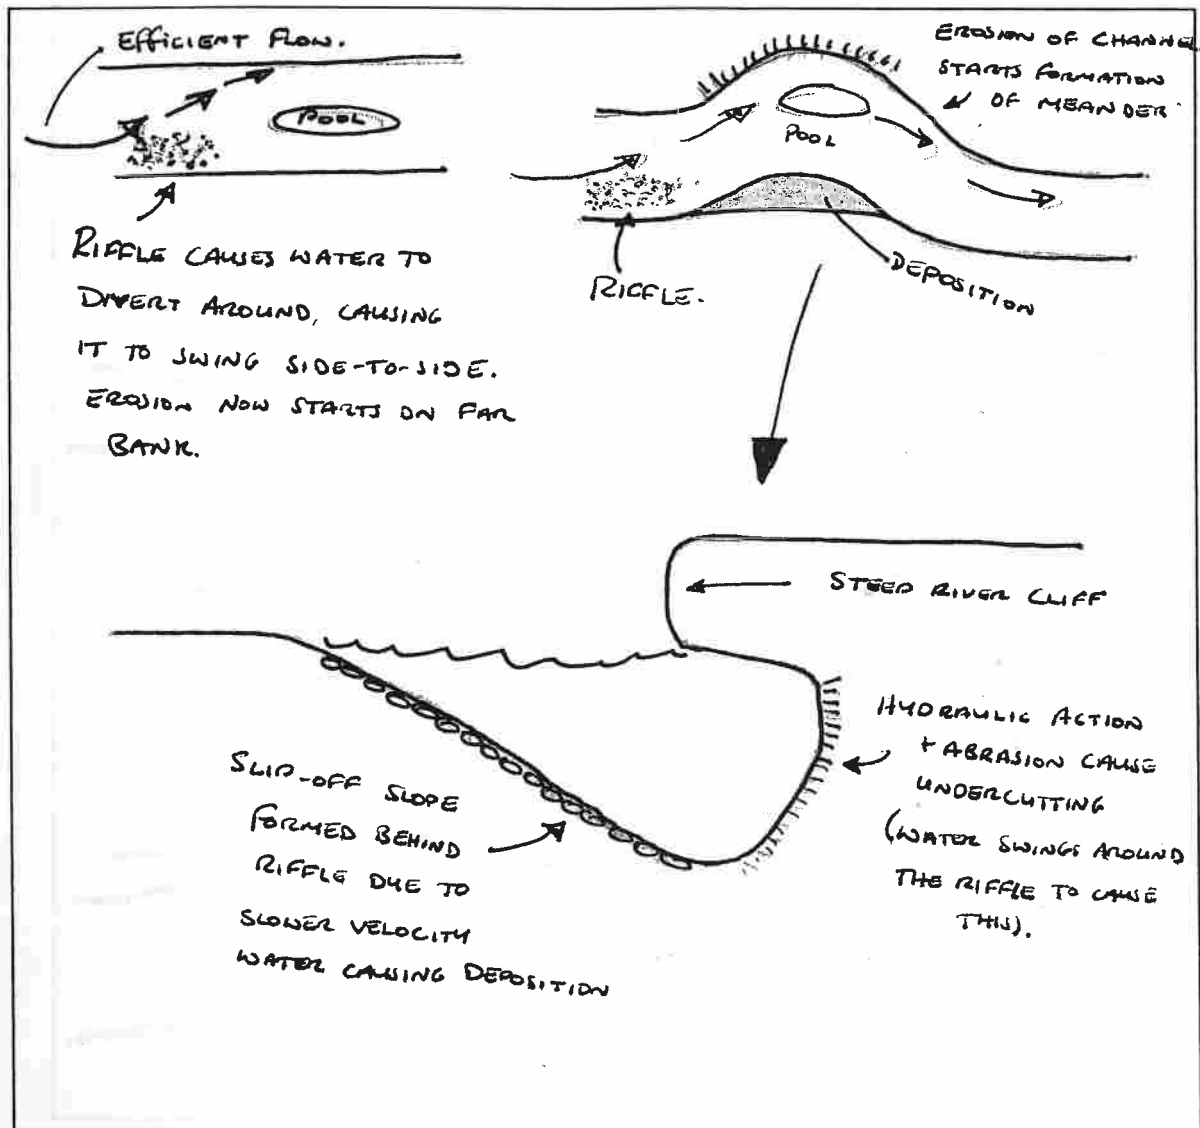 EFFICIENT FLOW.
POOL
RIFFLE CAUSES WATER TO
DIVERT AROUND, CAUSING
IT TO SWING SIDE-TO-SIDE.
EROSION NOW STARTS ON FAR
BANK.
EROSION OF CHANNEL
STARTS FORMATION
OF MEANDER
POOL
RIFFLE.
DEPOSITION
STEEP RIVER CLIFF
HYDRAULIC ACTION
+ ABRASION CAUSE
UNDERCUTTING
(WATER SWINGS AROUND
THE RIFFLE TO CAUSE
THIS).
SLIP-OFF SLOPE
FORMED BEHIND
RIFFLE DUE TO
SLOWER VELOCITY
WATER CAUSING DEPOSITION